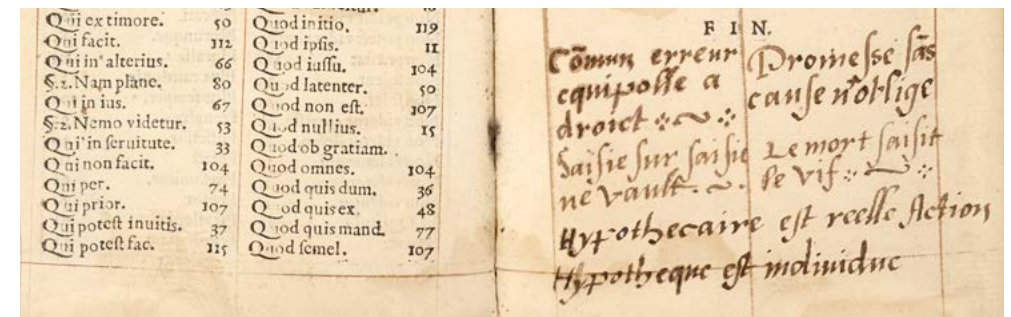 Qui ex timore. 50
Qui facit. 112
Qui in alterius. 66
§.2. Nam planè. 80
Qui in ius. 67
§.2. Nemo videtur. 53
Qui in ſeruitute. 33
Qui non facit. 104
Qui per. 74
Qui prior. 107
Qui poteſt inuitis. 37
Qui poteſt fac. 115
Quod initio. 119
Quod ipſis. 11
Quod iuſſu. 104
Quod latenter. 50
Quod non eſt. 107
Quod nullius. 15
Quod ob gratiam.
Quod omnes. 104
Quod quis dum. 36
Quod quis ex. 48
Quod quis mand. 77
Quod ſemel. 107
FIN.
Cõmun erreur
equipolle a
droict
Saiſie ſur ſaiſie
ne vault.
Promeſſe ſãs
cauſe n'oblige
Le mort ſaiſit
le vif
Hypothecaire eſt reelle Action
Hypotheque eſt indiuidue